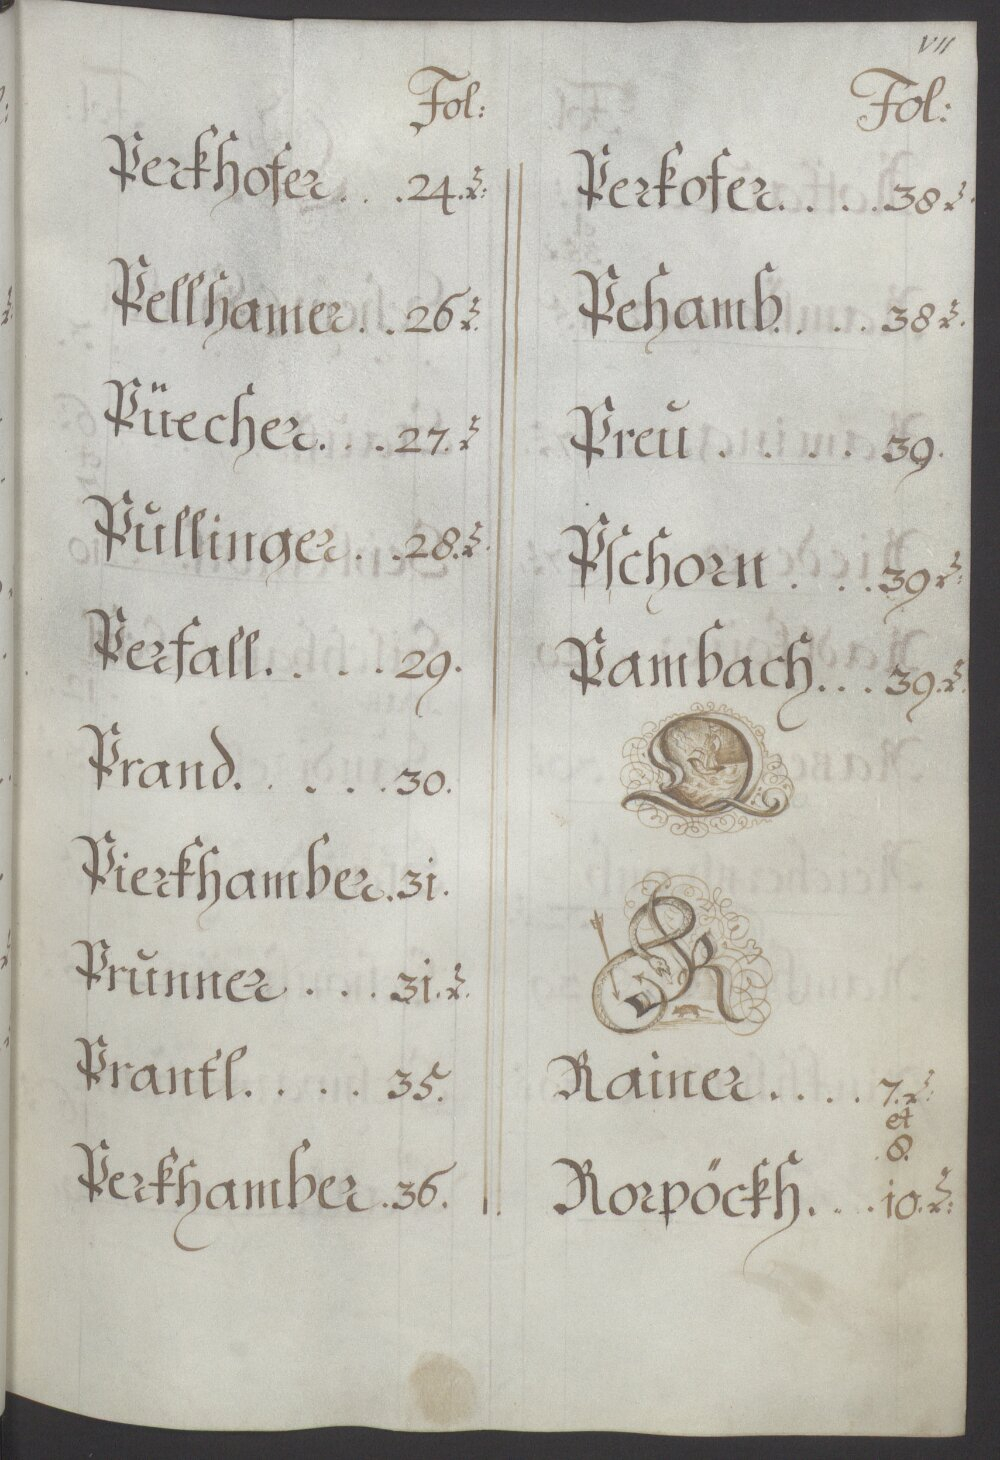 VII
Fol:
Perkhofer . . . 24. et:
Pellhamer. . 26 et.
Püecher. . . 27. et
Pullinger. . . 28. et.
Perfall. . . . 29.
Prand. . . . . 30.
Pierkhamber. 31.
Prunner . . . 31. et.
Prantl. . . . . 35.
Perkhamber. 36.
Fol:
Perkofer. . . . . 38 et.
Pehamb. . . . . 38 et.
Preu . . . . . 39.
Pschorn . . . . 39 et:
Pambach. . . . 39. et.
Q
R
Rainer. . . . . 7. et:
et
8.
Rorpöckh. . . . 10. et: